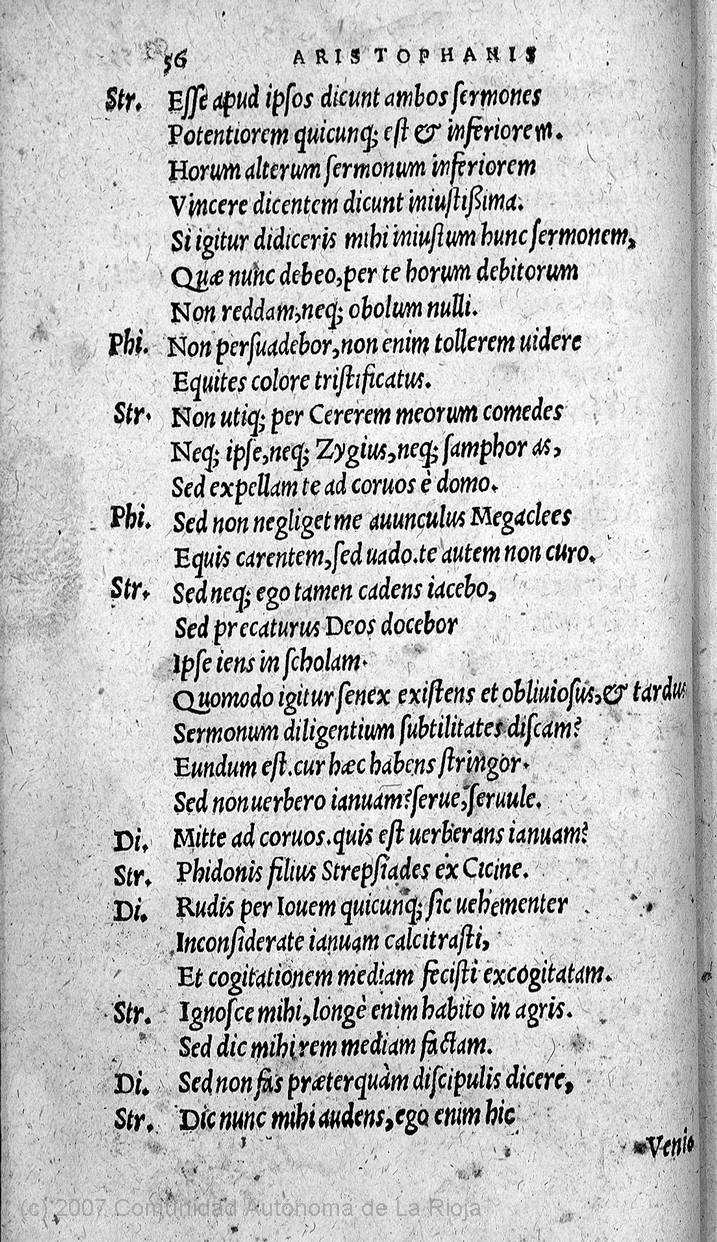 56 ARISTOPHANIS
Str. Eſſe apud ipſos dicunt ambos ſermones
Potentiorem quicunq; eſt & inferiorem.
Horum alterum ſermonum inferiorem
Vincere dicentem dicunt iniuſtißima.
Si igitur didiceris mihi iniuſtum hunc ſermonem,
Quæ nunc debeo, per te horum debitorum
Non reddam, neq; obolum nulli.
Phi. Non perſuadebor, non enim tollerem uidere
Equites colore triſtificatus.
Str. Non utiq; per Cererem meorum comedes
Neq; ipſe, neq; Zygius, neq; ſamphor as,
Sed expellam te ad coruos è domo.
Phi. Sed non negliget me auunculus Megaclees
Equis carentem, ſed uado. te autem non curo.
Str. Sed neq; ego tamen cadens iacebo,
Sed precaturus Deos docebor
Ipſe iens in ſcholam.
Quomodo igitur ſenex exiſtens et obliuioſus, & tardus
Sermonum diligentium ſubtilitates diſcam?
Eundum eſt. cur hæc habens ſtringor.
Sed non uerbero ianuam? ſerue, ſeruule.
Di. Mitte ad coruos. quis eſt uerberans ianuam?
Str. Phidonis filius Strepſiades ex Cicine.
Di. Rudis per Iouem quicunq; ſic uehementer
Inconſiderate ianuam calcitraſti,
Et cogitationem mediam feciſti excogitatam.
Str. Ignoſce mihi, longè enim habito in agris.
Sed dic mihi rem mediam factam.
Di. Sed non fas præterquàm diſcipulis dicere,
Str. Dic nunc mihi audens, ego enim hic
Venio
(c) 2007 Comunidad Autónoma de La Rioja